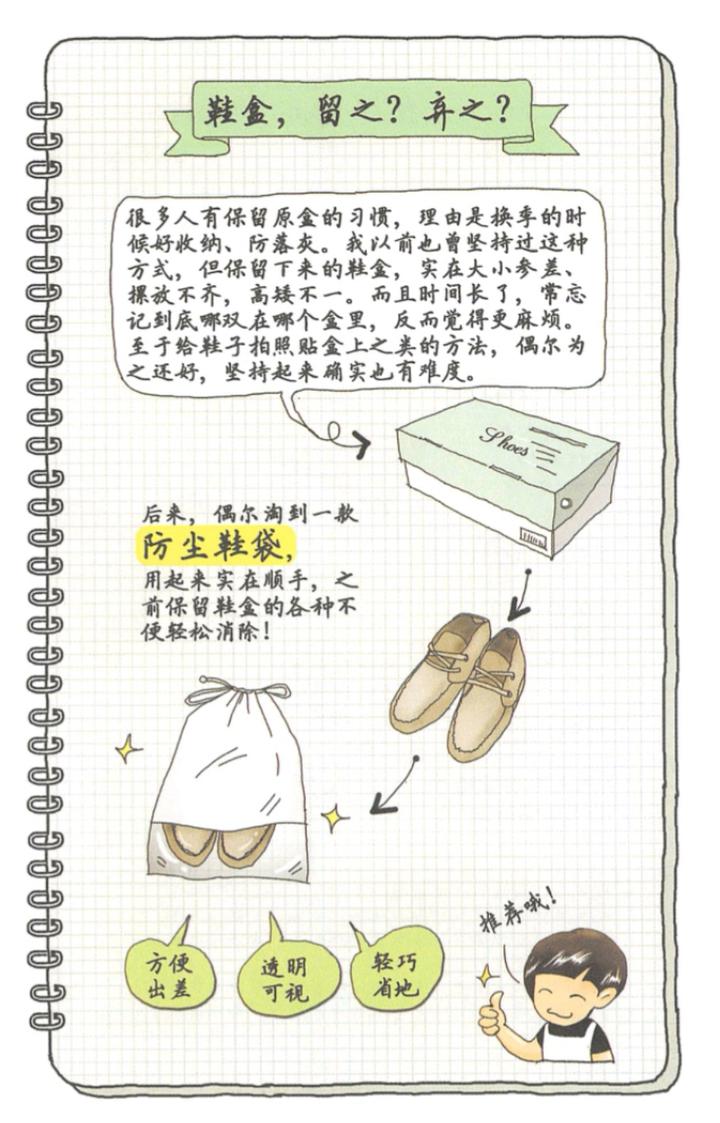 鞋盒，留之？弃之？
很多人有保留原盒的习惯，理由是换季的时
候好收纳、防落灰。我以前也曾坚持过这种
方式，但保留下来的鞋盒，实在大小参差、
摞放不齐，高矮不一。而且时间长了，常忘
记到底哪双在哪个盒里，反而觉得更麻烦。
至于给鞋子拍照贴盒上之类的方法，偶尔为
之还好，坚持起来确实也有难度。
Shoes
后来，偶尔淘到一款
防尘鞋袋，
用起来实在顺手，之
前保留鞋盒的各种不
便轻松消除！
方便
出差
透明
可视
轻巧
省地
推荐哦！